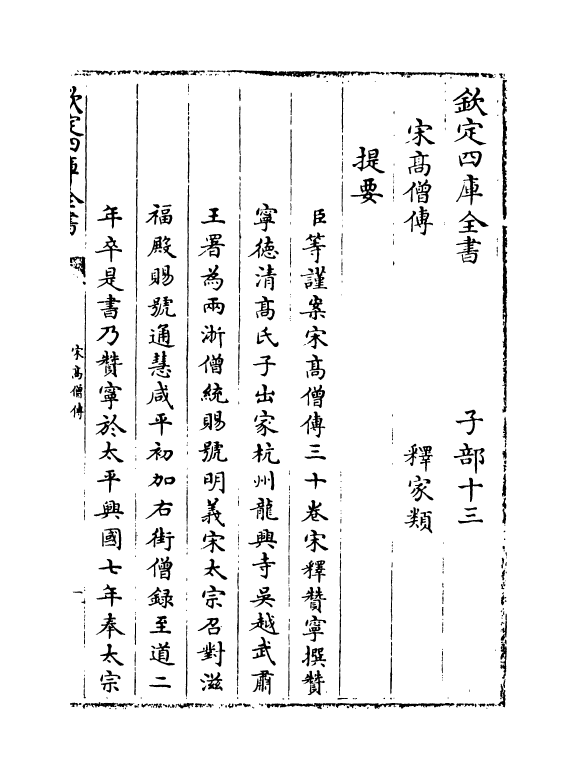 欽定四庫全書 子部十三
宋髙僧傳 釋家類
提要
臣等謹案宋髙僧傳三十卷宋釋贊寧撰贊
寧徳清髙氏子出家杭州龍興寺吳越武肅
王署為兩浙僧統賜號明義宋太宗召對滋
福殿賜號通慧咸平初加右街僧録至道二
年卒是書乃贊寧於太平興國七年奉太宗
欽定四庫全書
宋髙僧傳
一